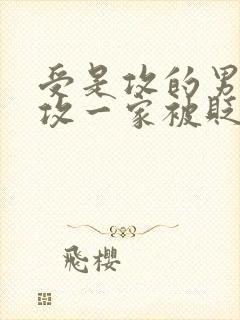 受是攻的男
攻一家被贬
飛櫻